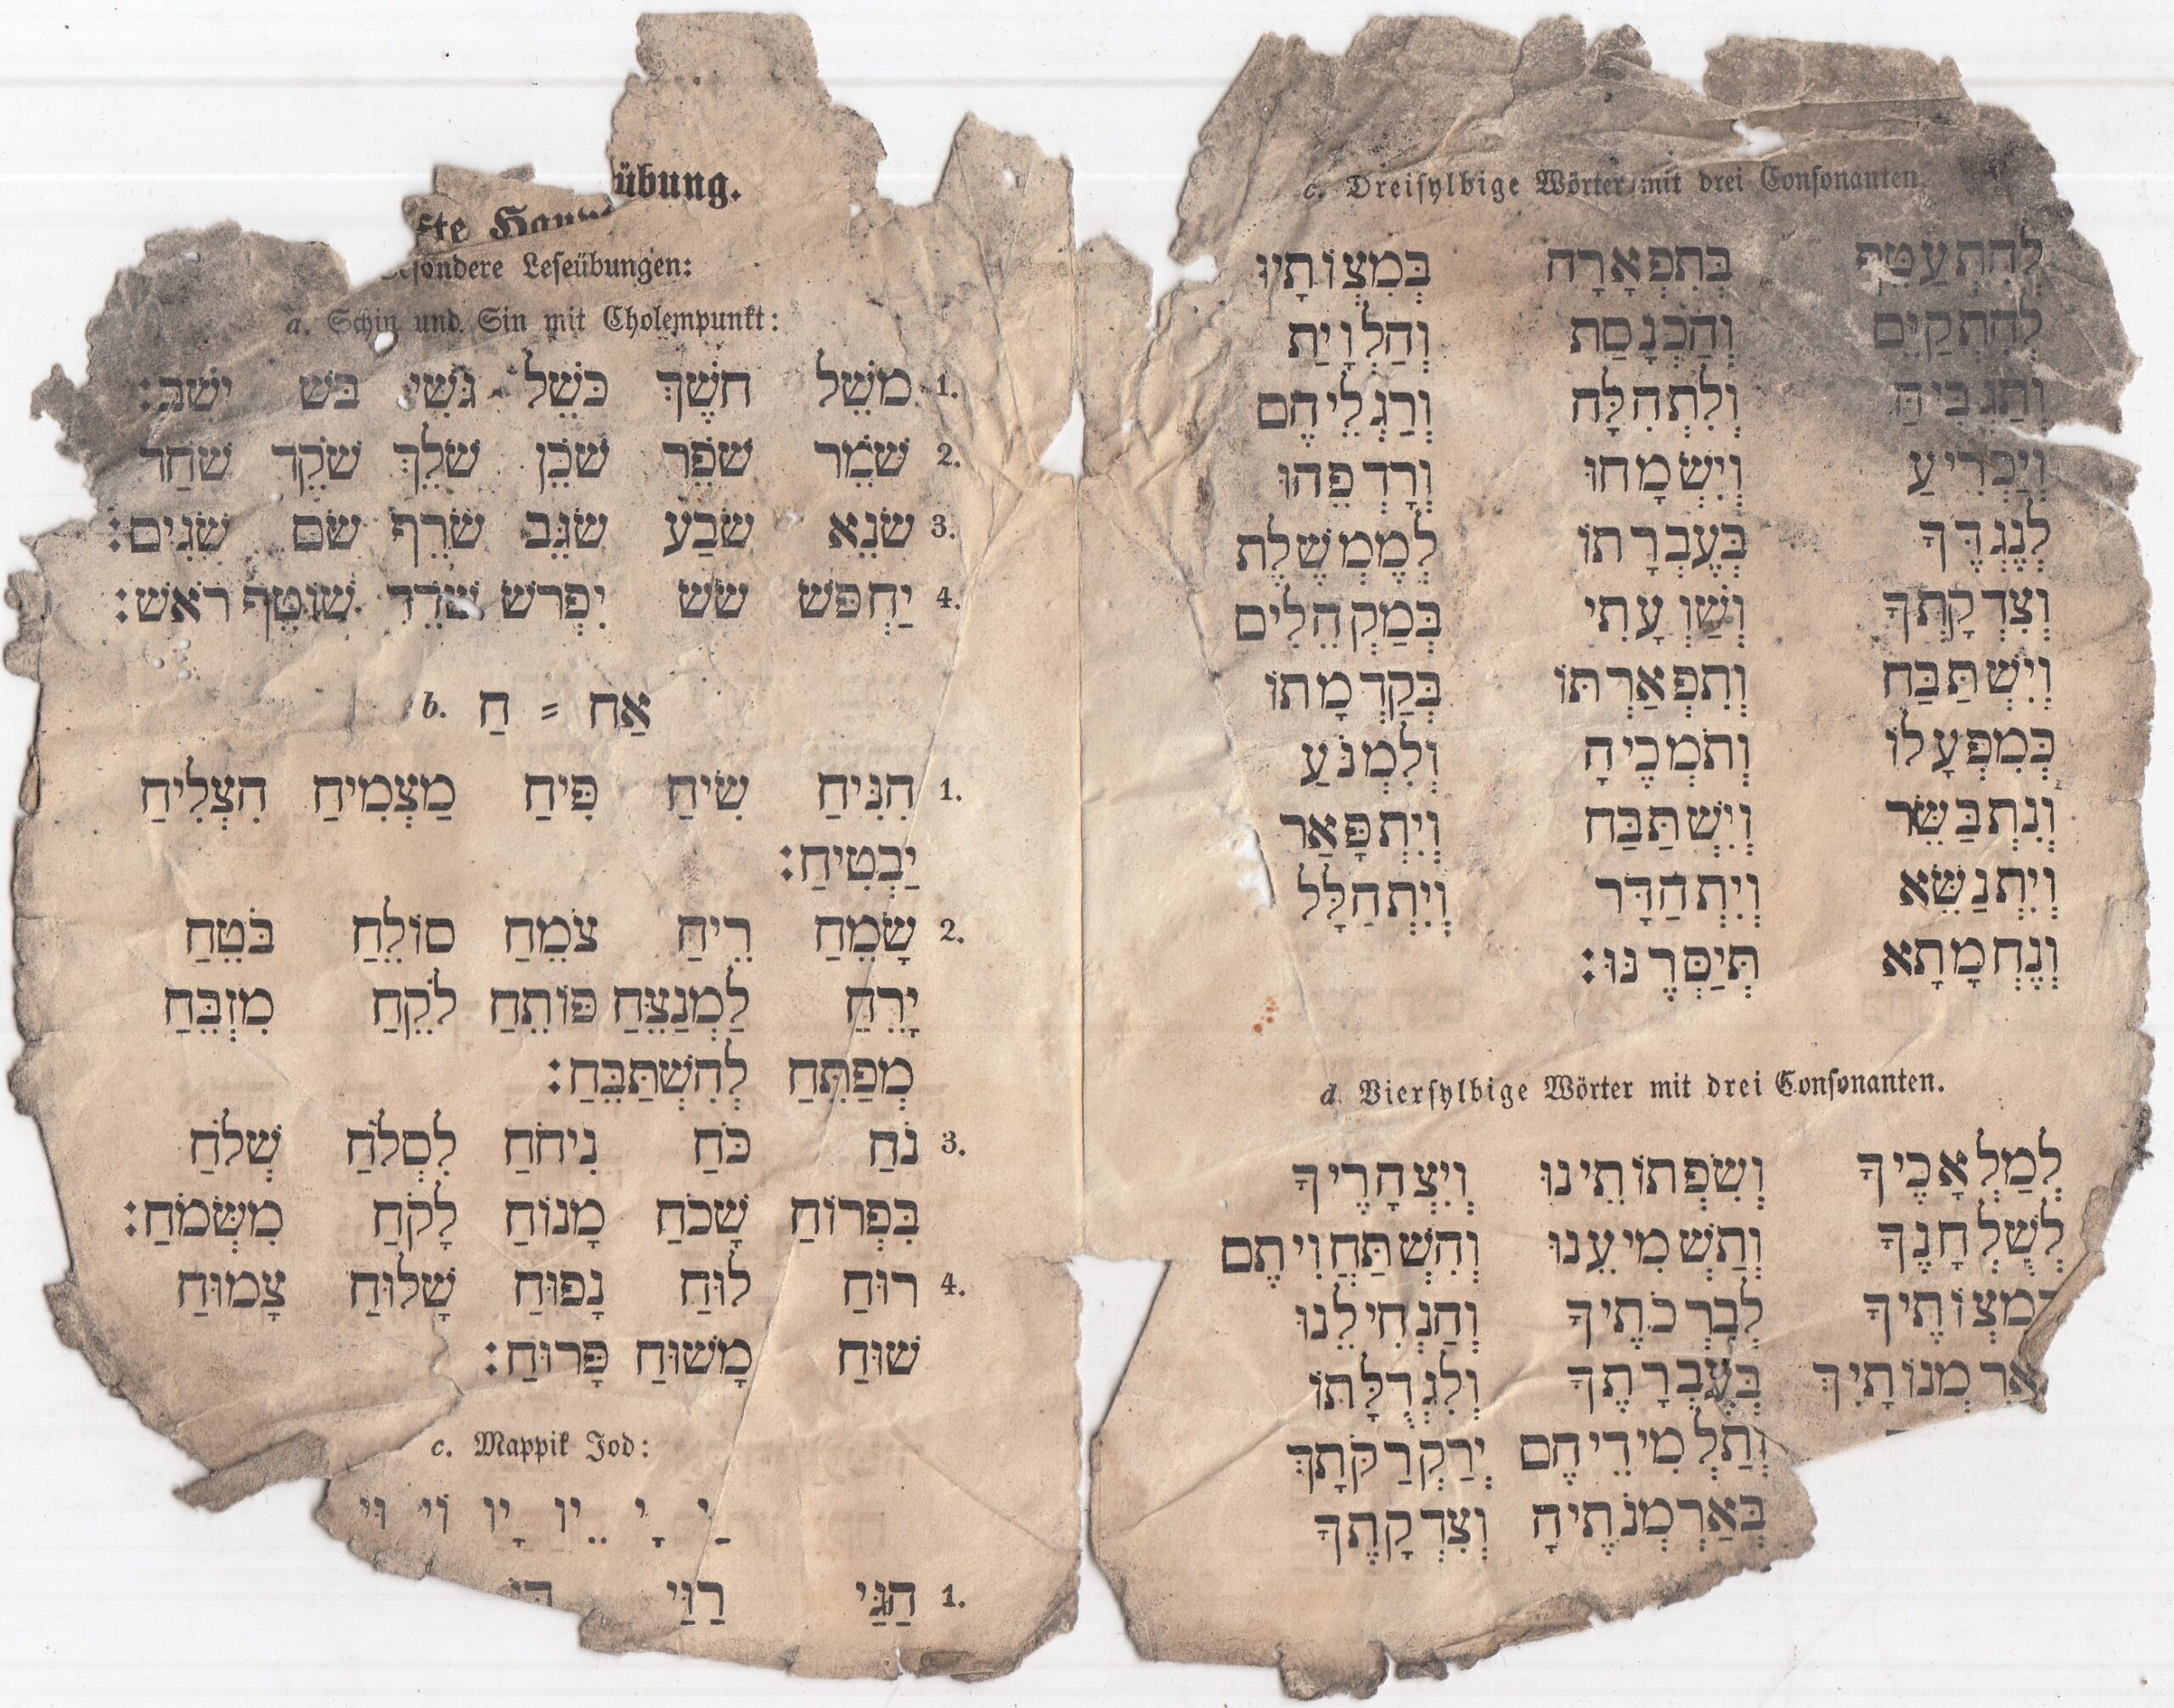 c. Dreisylbige Wörter mit drei Consonanten
לְהִתְעַטֵּף בְּתִפְאָרָה בְּמִצְוֹתָיו
לְהִתְקַיֵּם וְהַכְנָסַת וְהַלְוָיַת
וְלִתְהִלָּה וְרַגְלֵיהֶם
וְיַכְרִיעַ וְיִשְׂמָחוּ וְרָדְפֵהוּ
לְנֶגְדֶּךָ בְּעֶבְרָתוֹ לְמֶמְשֶׁלֶת
וְצִדְקָתְךָ וְשַׁוְעָתִי בְּמַקְהֵלִים
וְיִשְׁתַּבַּח וְתִפְאַרְתּוֹ בְּקַדְמָתוֹ
כְּמִפְעָלוֹ וְתֹמְכֶיהָ וְלִמְנֹעַ
וְנִתְבַּשֵּׂר וְיִשְׁתַּבַּח וְיִתְפָּאַר
וְיִתְנַשֵּׂא וְיִתְהַדָּר וְיִתְהַלָּל
וְנֶחְמָתָא תְּיַסְּרֶנּוּ׃
d. Viersylbige Wörter mit drei Consonanten.
לְמַלְאָכֶיךָ וְשִׂפְתוֹתֵינוּ וְיִצְהָרֶיךָ
לְשֻׁלְחָנֶךָ וְתַשְׁמִיעֵנוּ וְהִשְׁתַּחֲוִיתֶם
מִצְוֹתֶיךָ לְבִרְכֹתֶיךָ וְהַנְחִילֵנוּ
אַרְמְנוֹתָיִךְ בְּעֶבְרָתֶךָ וְלִגְדֻלָּתוֹ
וְתַלְמִידֵיהֶם יְרַקְרַקֹּתָךְ
בְּאַרְמְנֹתֶיהָ וְצִדְקָתֶךָ
übung.
fte Hau
sondere Leseübungen:
a. Schin und Sin mit Cholempunkt:
1. משֵׁל חשֶׁךְ כּשֵׁל גּשֵׁי בּשׁ ישֵׁב׃
2. שֹׁמֵר שֹׁפֵר שֹׁכֵן שֹׁלֵךְ שֹׁקֵד שֹׁחַד
3. שֹׂנֵא שֹׂבַע שֹׂגֵּב שֹׂרֵף שֹׂם שֹׂגִים׃
4. יַחְפּשׂ שׂשׂ יִפְרשׂ שֹׁדֵד שׁוֹטֵף רֹאשׁ׃
b. חַ = אַח
1. הִנִּיחַ שִׂיחַ פִּיחַ מַצְמִיחַ הִצְלִיחַ
יַבְטִיחַ׃
2. שָׂמֵחַ רֵיחַ צֹמֵחַ סוֹלֵחַ בֹּטֵחַ
יָרֵחַ לַמְנַצֵּחַ פּוֹתֵחַ לֹקֵחַ מִזְבֵּחַ
מְפַתֵּחַ לְהִשְׁתַּבֵּחַ׃
3. נֹחַ כֹּחַ נִיחֹחַ לִסְלֹחַ שְׁלֹחַ
בִּפְרוֹחַ שָׁכֹחַ מָנוֹחַ לָקֹחַ מִשְּׂמֹחַ׃
4. רוּחַ לוּחַ נָפוּחַ שָׁלוּחַ צָמוּחַ
שׁוּחַ מָשׁוּחַ פָּרוּחַ׃
c. Mappik Jod:
ַי ָי ֵיו ָיו וֹי וּי
1. הַגַּי רַוַּי